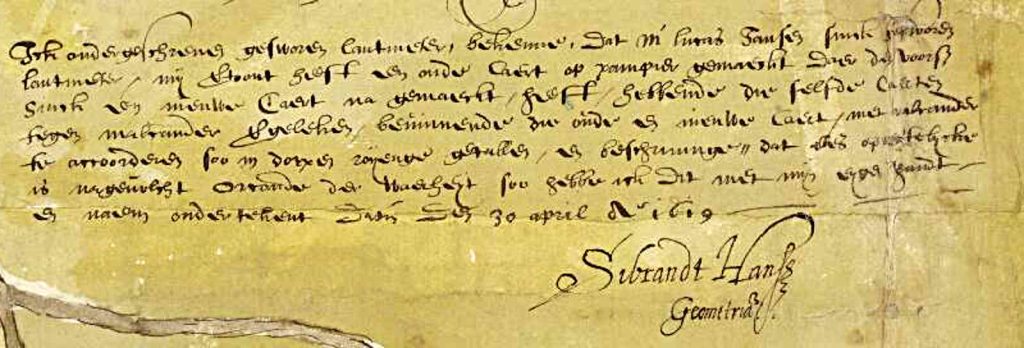 Ick ondergeschreven gesworen lantmeter, bekenne, dat Mr lucas Jansen sinck gesworen
lantmeter, mij thoont heeft een oude Caert op pampier gemaeckt daer de voorsz
Sinck een nieuwe Caert na gemaeckt heeft, hebbende die selfde Caerten
tegen malcander vgeleken, bevinnende die oude en nieuwe Caert, met malcander
te accoorderen soo in dorpen getallen, en beschrivinge dat alles
is nagevolcht Oirconde der Waerheyt soo hebbe ick dit met mijn eygen handt
en naem onderteikent den 20 april Ao 1619
Sibrandt Hansz
Geometria